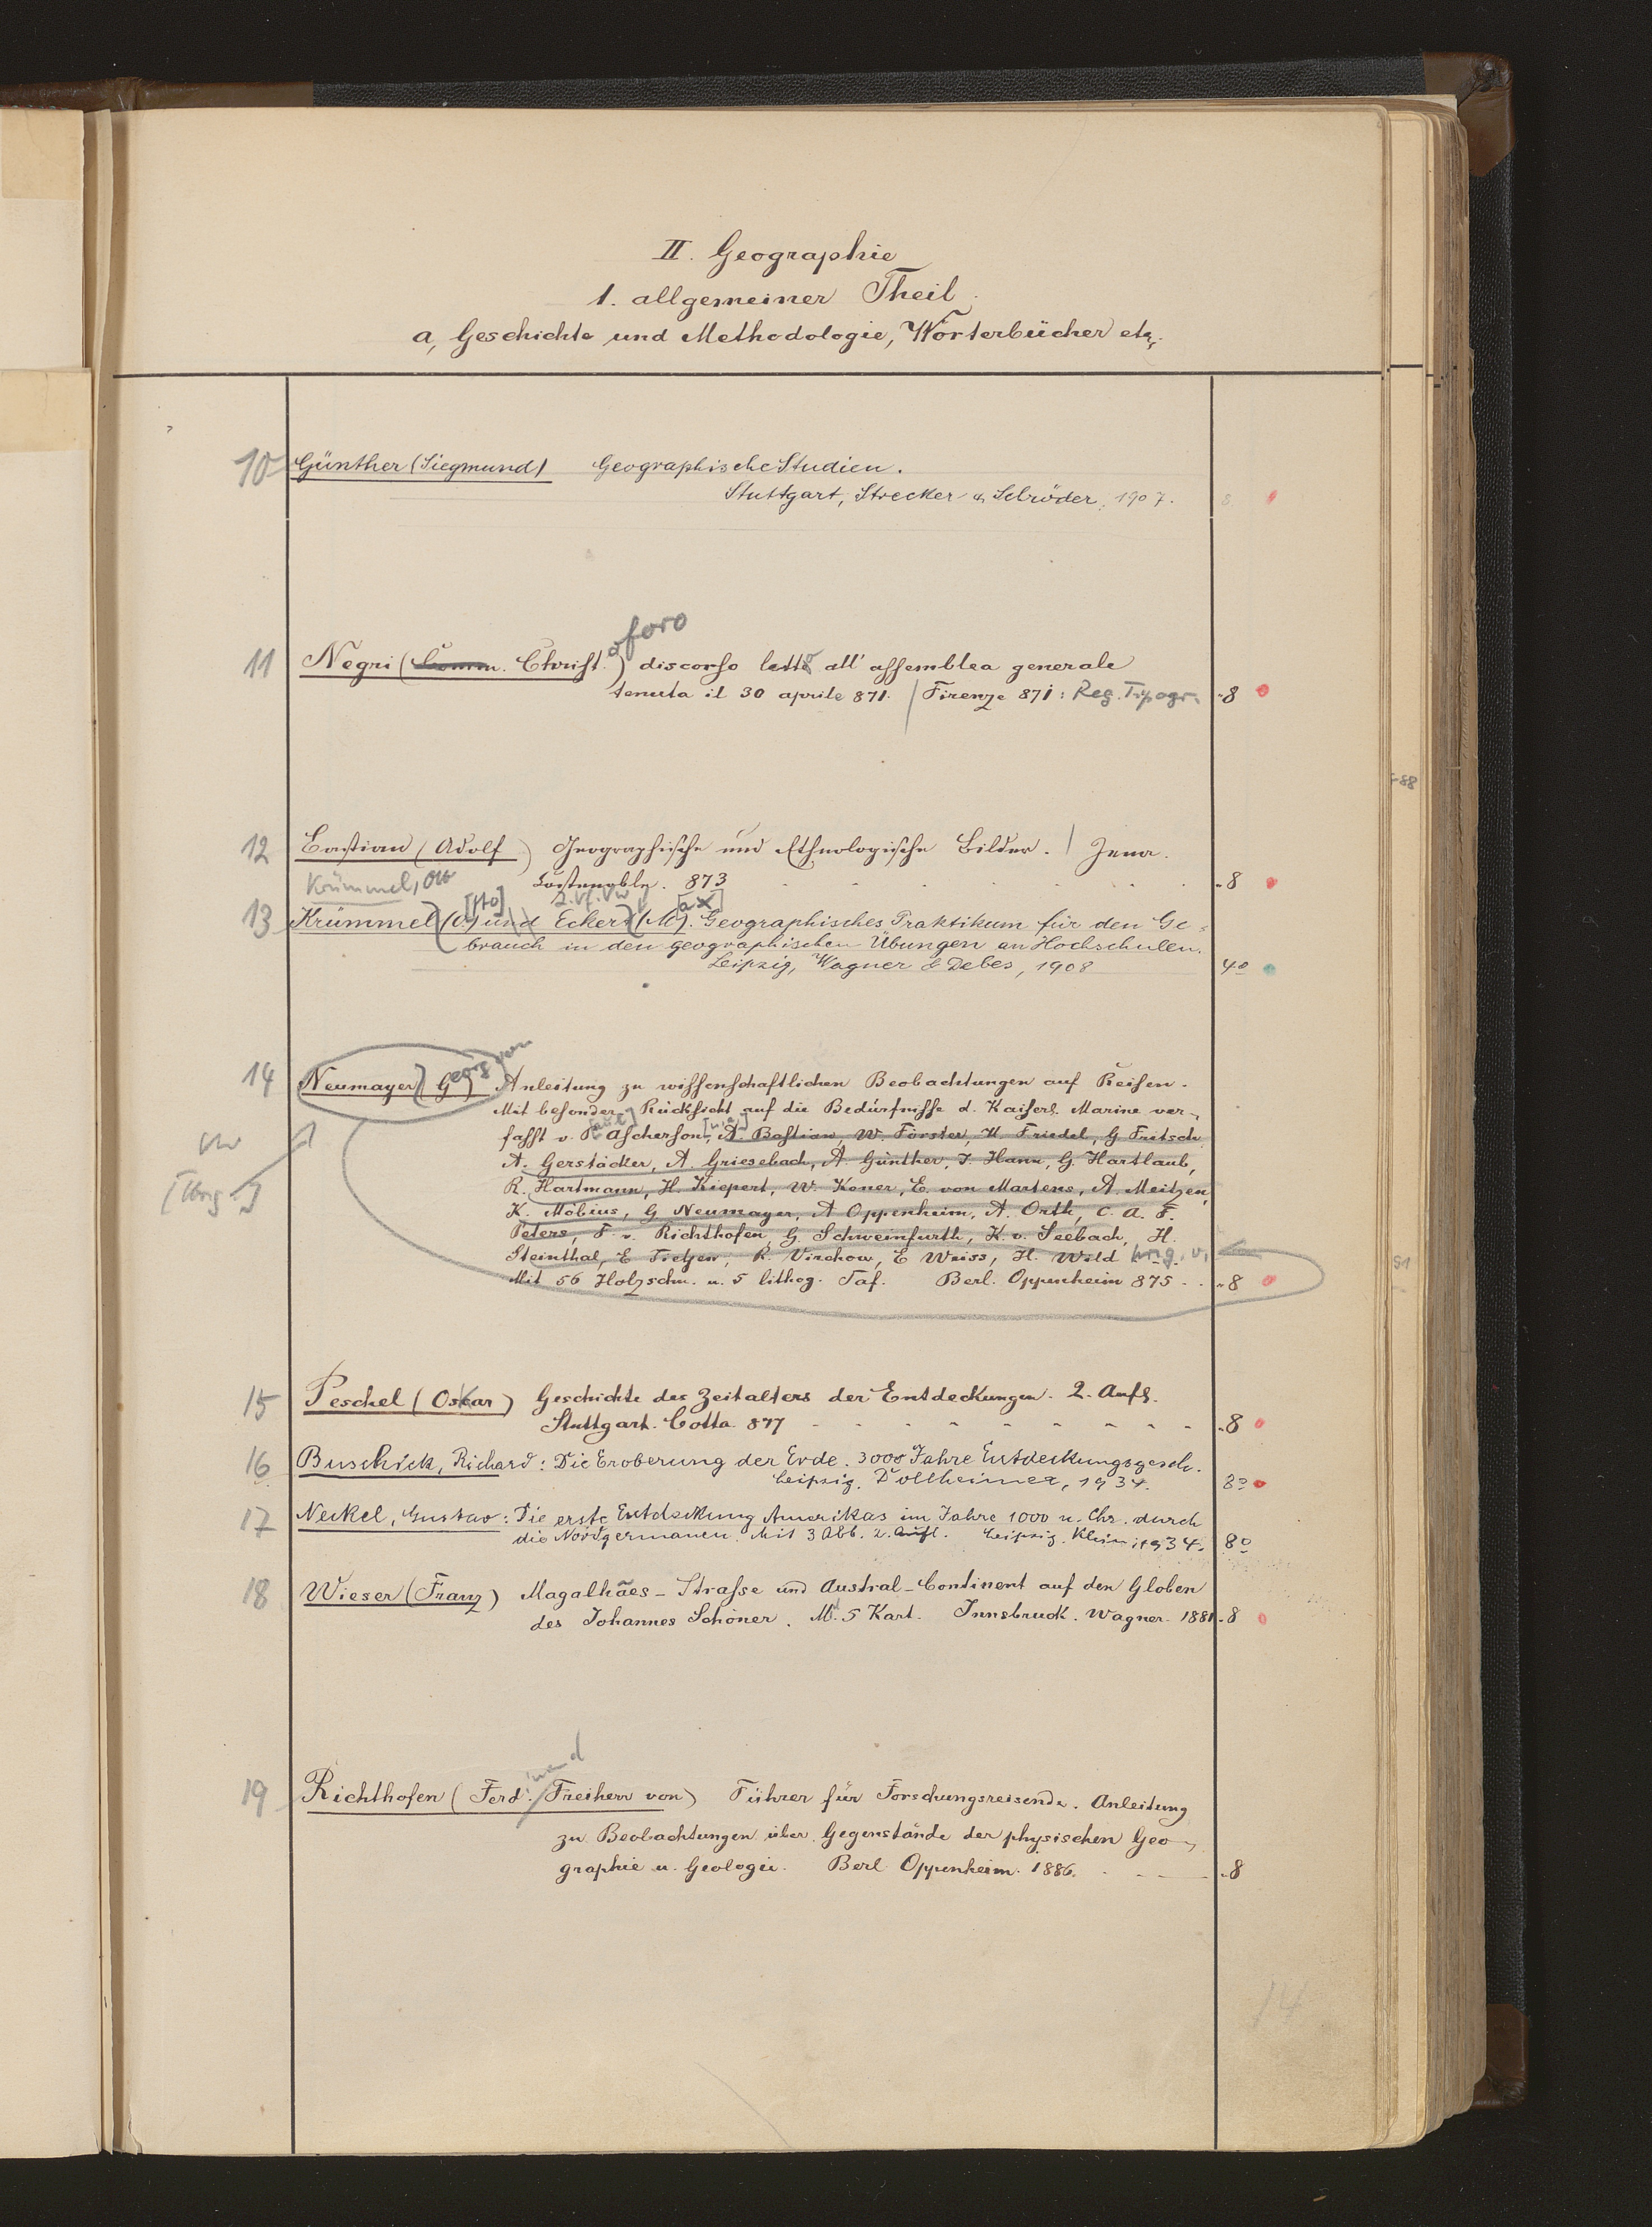 II. Geographie
1. allgemeiner Theil.
a, Geschichte und Methodologie, Wörterbücher etz.
10 Günther (Siegmund) Geographische Studien.
Stuttgart, Strecker & Schröder, 1907. 8
oforo
11 Negri (Comm. Christ.) discorso letto all' assemblea generale
tenuta il 30 aprile 871. / Firenze 871: Reg. Tipogr. -8
12 Bastian (Adolf) Geographische und Ethnologische Bilder. / Jena.
Krümmel, Otto Costenoble. 873 -8
[tto] 2. Vf. Vw [ax]
13 Krümmel (O.) und Eckert (M). Geographisches Praktikum für den Ge-
brauch in den geographischen Übungen an Hochschulen.
Leipzig, Wagner & Debes, 1908 4o
14 Neumayer (Georg von) Anleitung zu wissenschaftlichen Beobachtungen auf Reisen.
Mit besonder. Rücksicht auf die Bedürfnisse d. Kaiserl. Marine ver-
fasst v. P. Ascherson, A. Bastian, W. Förster, H. Friedel, G. Fritsch,
Vw
A. Gerstäcker, A. Griesebach, A. Günther, J. Hann, G. Hartlaub,
R. Hartmann, H. Kiepert, W. Koner, E. von Martens, A. Meitzen,
K. Möbius, G Neumayer, A Oppenheim, A. Orth, C. A. F.
Peters, F. v. Richthofen, G. Schweinfurth, K. v. Seebach, H.
Steinthal, E Tietjen, R. Virchow, E Weiss, H. Wild hrsg. v.
Mit 56 Holzschn. u. 5 lithog. Taf. Berl. Oppenheim 875 -8
15 Peschel (Oskar) Geschichte des Zeitalters der Entdeckungen. 2. Aufl.
Stuttgart. Cotta. 877 -8
16 Buschick, Richard: Die Eroberung der Erde. 3000 Jahre Entdeckungsgesch.
Leipzig. Dollheimer, 1934. 8o
17 Neckel, Gustav: Die erste Entdeckung Amerikas im Jahre 1000 n. Chr. durch
die Nordgermanen. Mit 3 Abb. 2. Aufl. Leipzig. Klein, 1934. 8o
18 Wieser (Franz) Magalhães-Strasse und Austral-Continent auf den Globen
des Johannes Schöner. M. 5 Kart. Innsbruck. Wagner. 1881 -8
inand
19 Richthofen (Ferd. Freiherr von) Führer für Forschungsreisende. Anleitung
zu Beobachtungen über Gegenstände der physischen Geo-
graphie u. Geologie. Berl. Oppenheim. 1886. -8
14